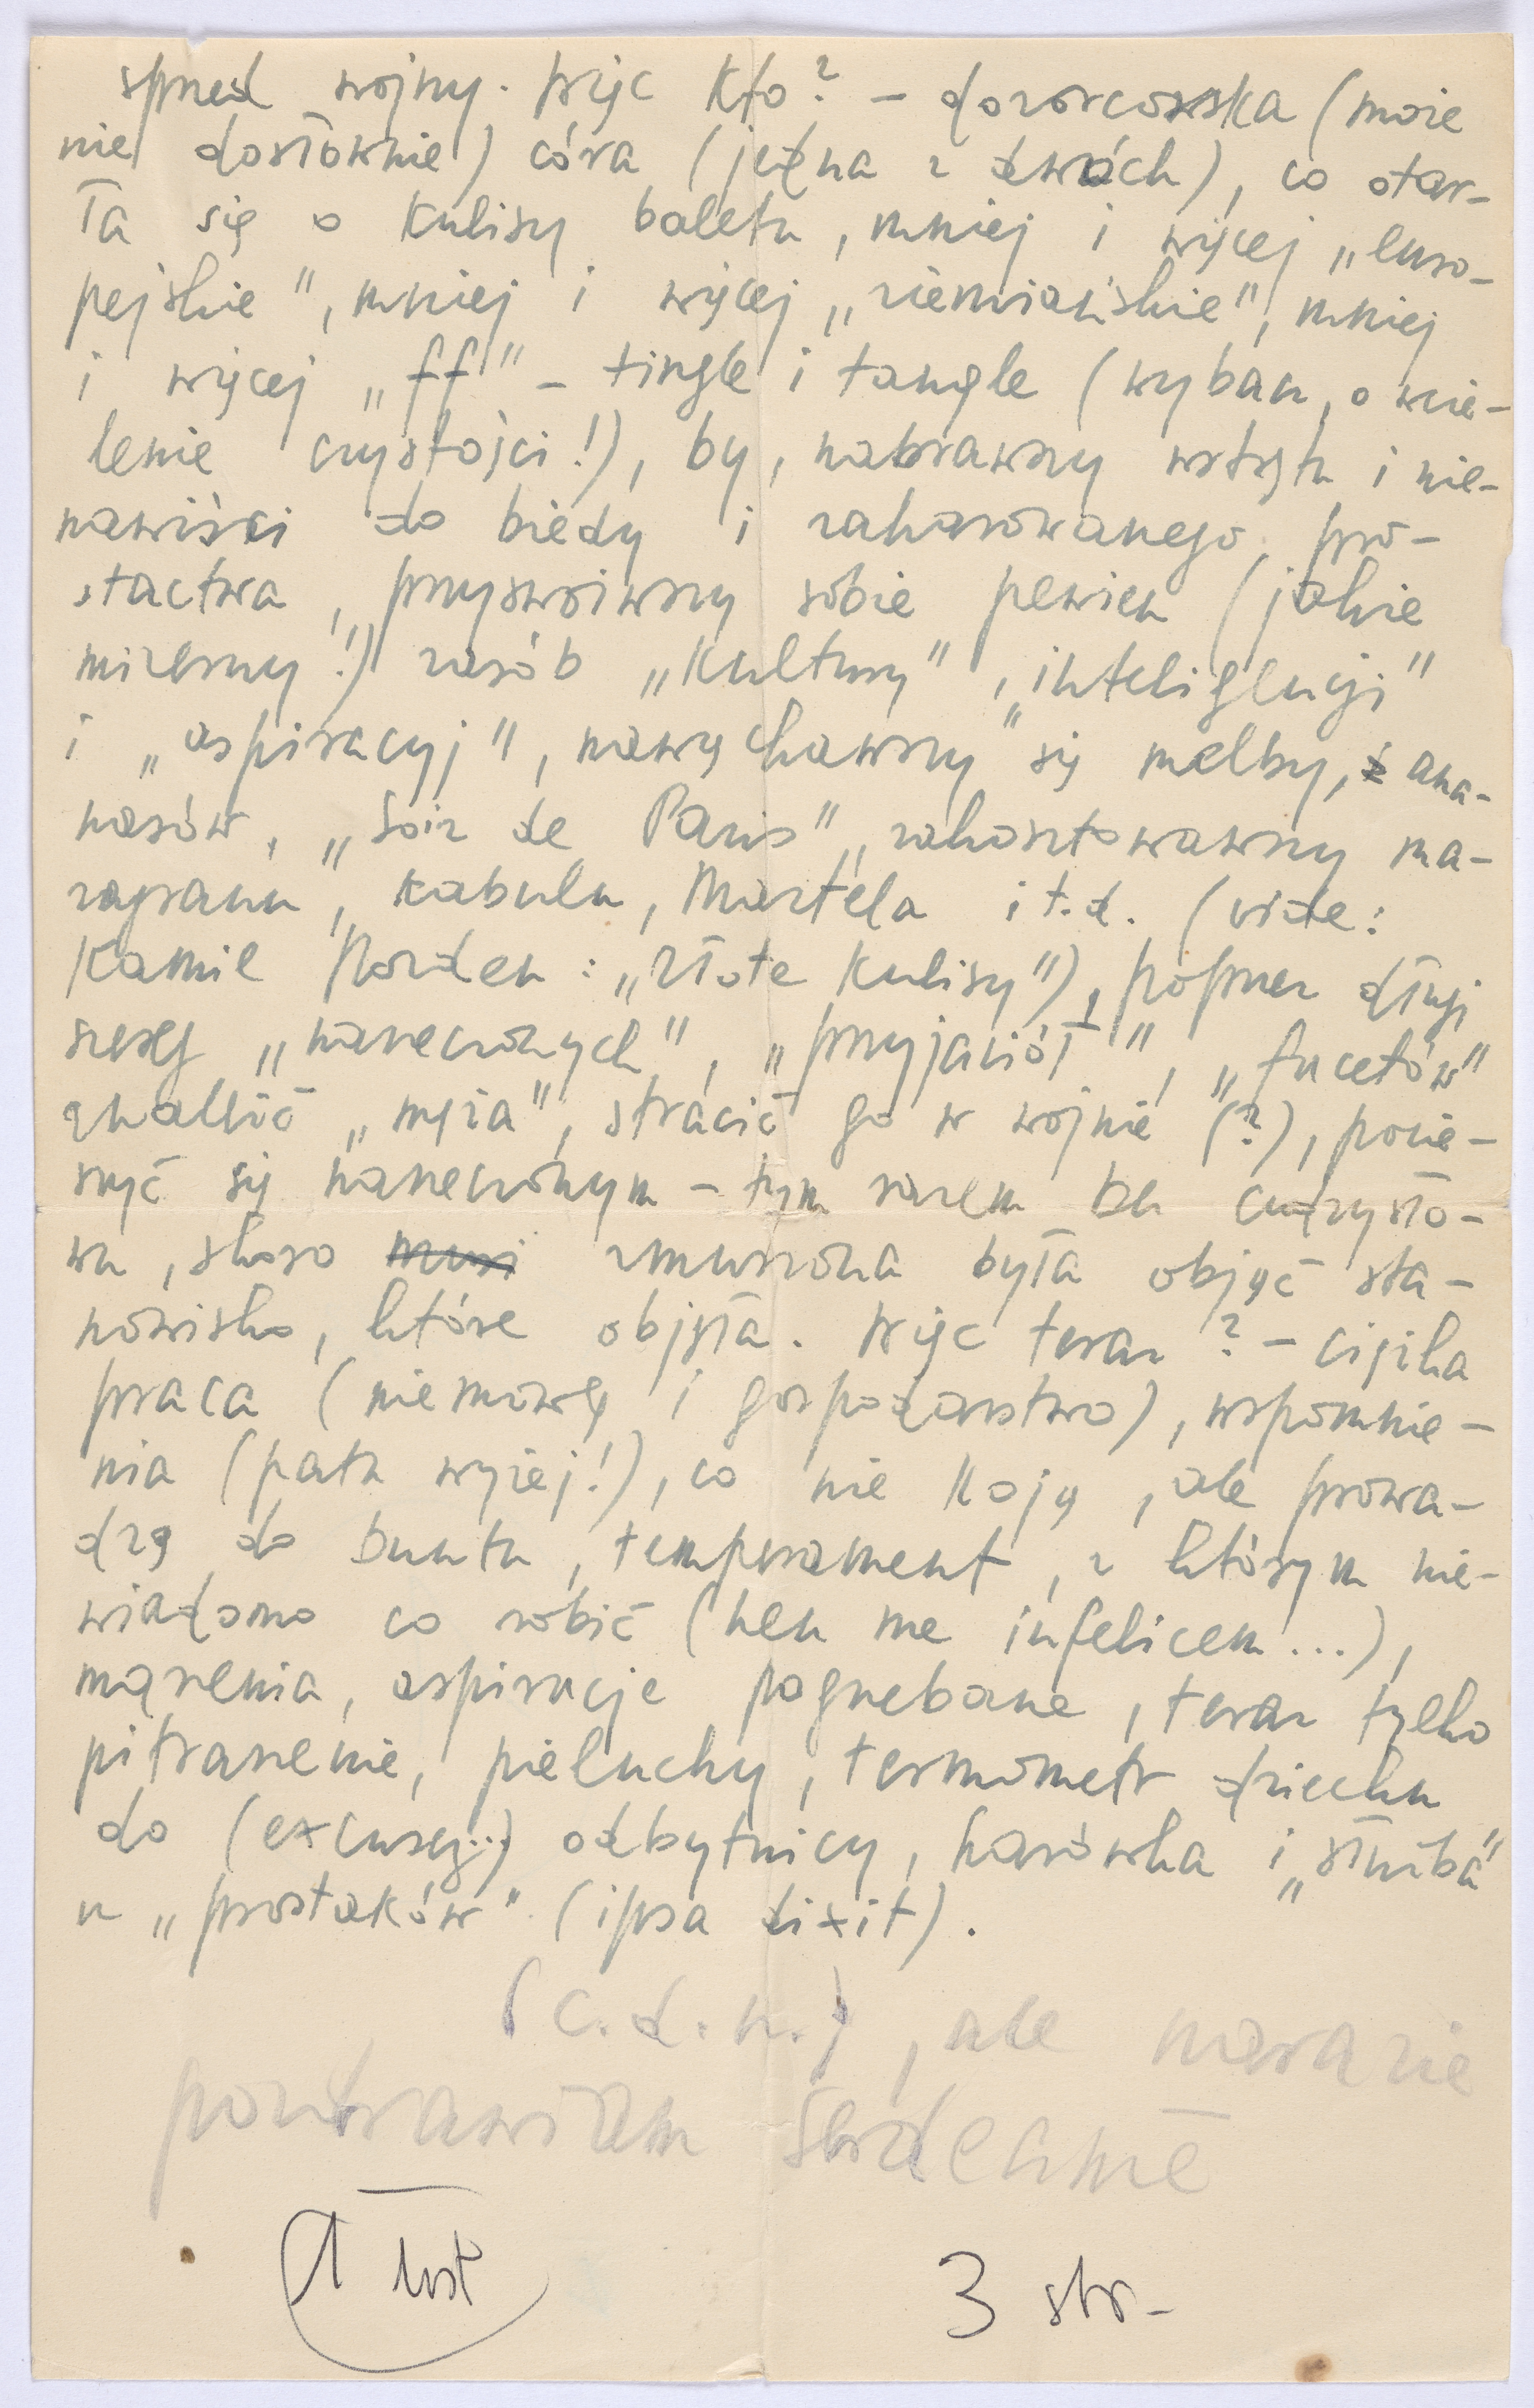 sprzed wojny. Więc kto? – dozorcowska (może
nie dosłownie) córa (jedna z dwóch), co otar-
ła się o kulisy baletu, mniej i więcej „euro-
pejskie”, mniej i więcej „ziemiańskie”, mniej
i więcej „ff” – tingle i tangle (wybacz, o wcie-
lenie czystości!), by, nabrawszy wstrętu i nie-
nawiści do biedy i zaharowanego pro-
stactwa, przyswoiwszy sobie pewien (jakże
mizerny!) zasób „kultury”, „inteligencji”
i „aspiracyj”, nawąchawszy się melby, ana-
nasów, „Soir de Paris”, zakosztowawszy ma-
zagranu, kabulu, Martela i t.d. (vide:
Kamil Norden: „Złote kulisy”), poprzez długi
szereg „narzeczonych”, „przyjaciół”, „facetów”
znaleźć „męża”, stracić go w wojnie (?), pocie-
szyć się narzeczonym – tym razem bez cudzysło-
wu, skoro musi zmuszona była objąć sta-
nowisko, które objęła. Więc teraz? – ciężka
praca (niemowlę i gospodarstwo), wspomnie-
nia (patrz wyżej!), co nie koją, ale prowa-
dzą do buntu, temperament, z którym nie-
wiadomo co robić (heu me infelicem...),
marzenia, aspiracje pogrzebane, teraz tylko
pitraszenie, pieluchy, termometr dziecku
do (excusez..) odbytnicy, harówka i „służba”
u „prostaków” (ipsa dixit).
(c.d.n.), ale narazie
pozdrawiam serdecznie
1 list
3 str-